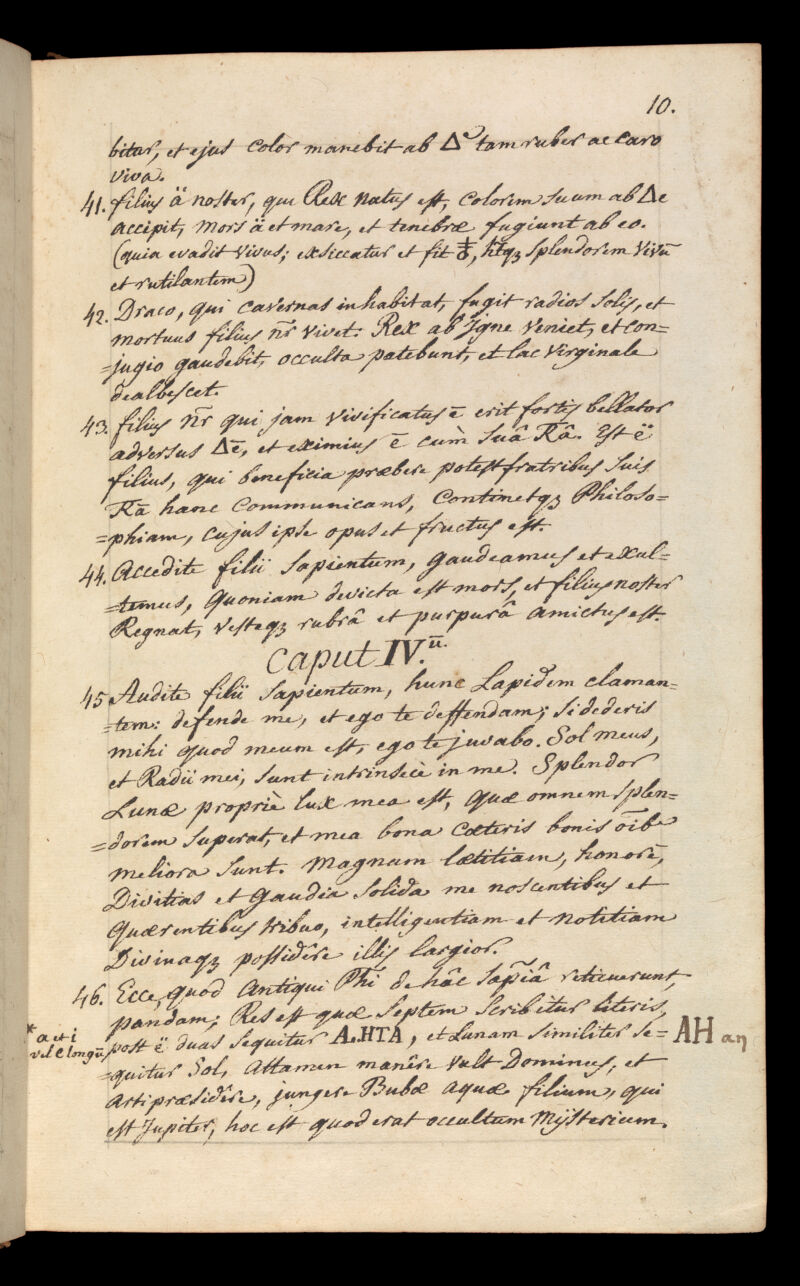 10.
bitur, et ejus color manebit ab Δe tam ruber ac caro
viva.
41. filius ä noster, qui Rex natus est, colorem suum ab Δe
accipit, mors ä et mare, et tenebræ fugiunt ab eo.
(quia evadit vivus; exsiccatur et fit splendorem vivū
et rutilantem)
42. Draco, qui cavernas inhabitat, fugit radios solis, et
mortuus filius nr̄ vivet: Rex ab Igne veniet, et con-
=jugio gaudebit, occulta patebunt, et lac virginale
dealbescet.
43. filius nr̄ qui jam vivificatus ē erit fortis bellator
adversus Δē, et eximius ē cum suâ Rā. Est ë
filius, qui beneficia præbere potest fratribus suis
Rā hanc communicans, Continetqȝ Philoso-
=phiam, cujus ipse opus et fructus est.
44. Accedite filii Sapientum, gaudeamus et exul-
=temus, quoniam devicta est mors, et filius noster
Regnat, vesteqȝ rubrâ et purpurâ amictus est.
Caput IV.ū.
45 Audite filii Sapientum, hunc Lapidem claman-
=tem: defende me, et ego te deffendam; si dederis
mihi quod meum est, ego te juvabo. Sol meus,
et Radii mei, sunt intrinsecè in me. Splendor
Lunæ propriè lux mea est, quæ omnem splen-
=dorem superat, et mea bona cæteris bonis oīb9
meliora sunt. Magnam lætitiam, honorē,
Divitias et Gaudia solida me noscentibus et
Quærentibus tribuo, intelligentiam et notitiam
Divinaqȝ possidêre illis largior.
46. Ecce, quod Antiqui Phi de hâc Sap̄iâ reticuerunt,
pandam; Res est quæ septem scribitur literis,
*a et i
vel e longū
post ë duas sequitur A.HTA, et Lunam similiter se-
AH an
=quitur Sol, attamen manêre vult Dominus, et
Arti præsidêre, jungere Bubæ aquæ filium, qui
est Jupiter, hoc est quod erat occultum Mÿsterium.